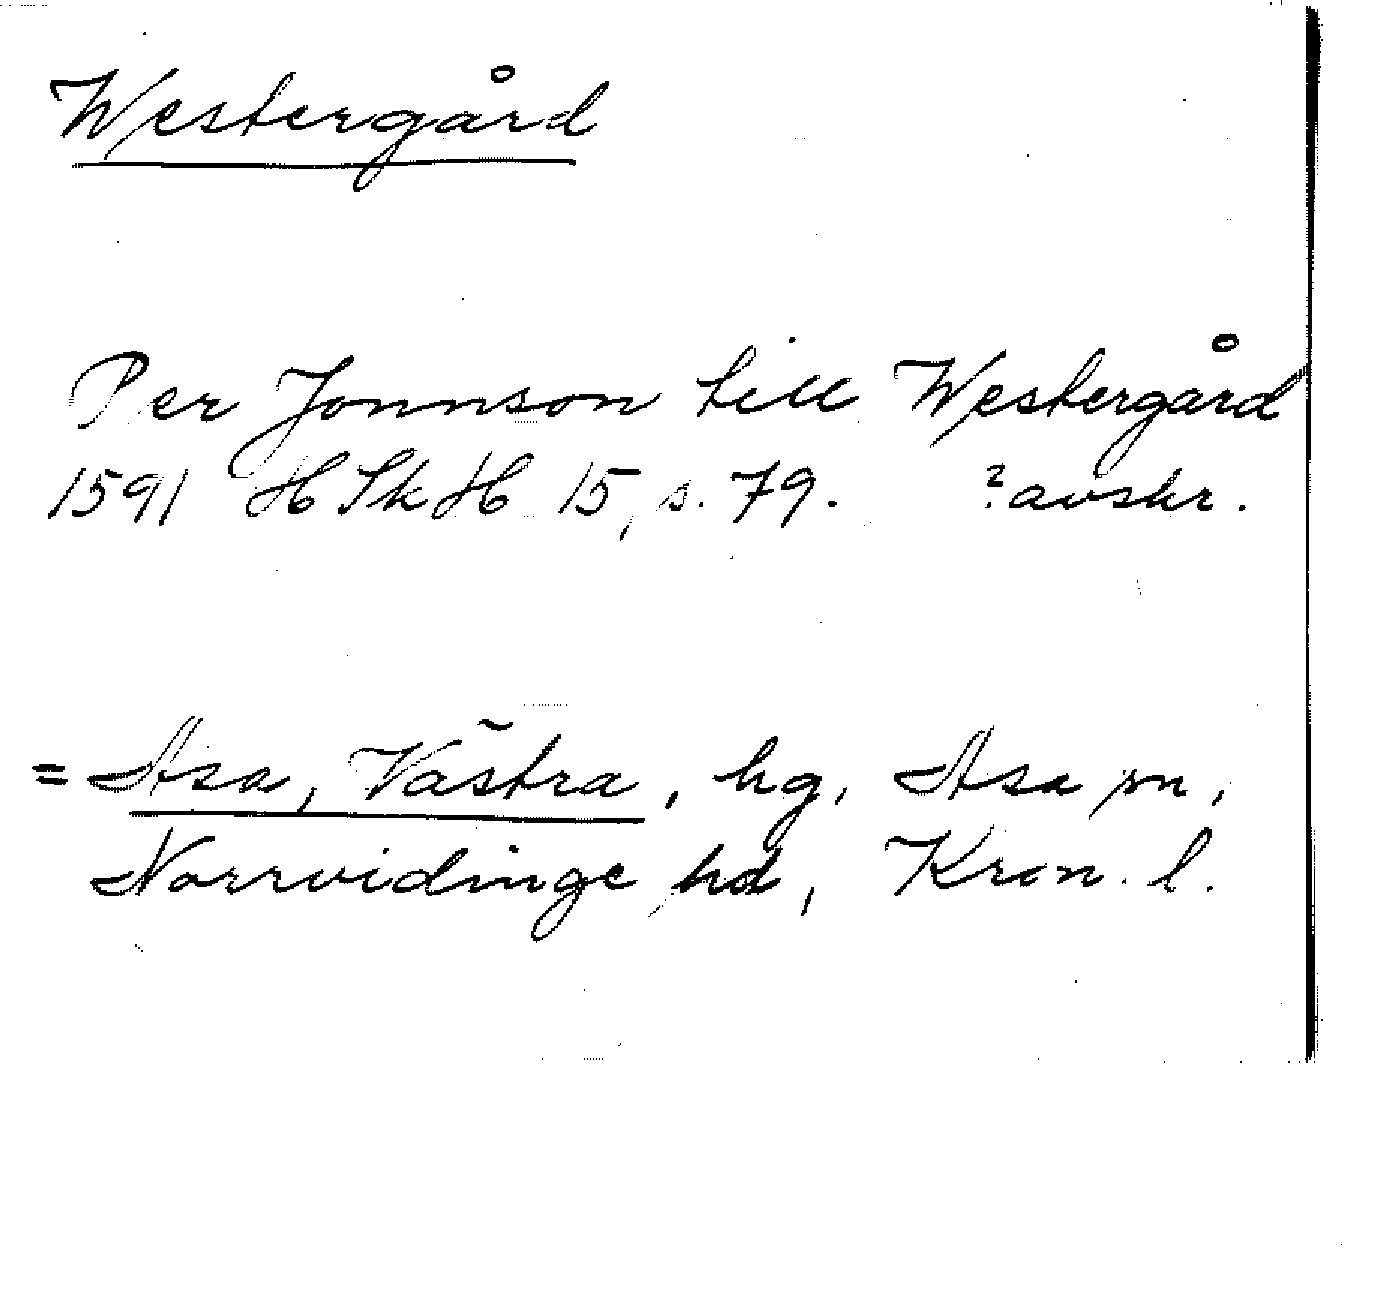 Westergård
Per Jonnson till Westergård
1591 HSkH 15, s. 79. ?avskr.
= Asa, Västra, hg, Asa sn,
Norrvidinge hd, Kron. l.